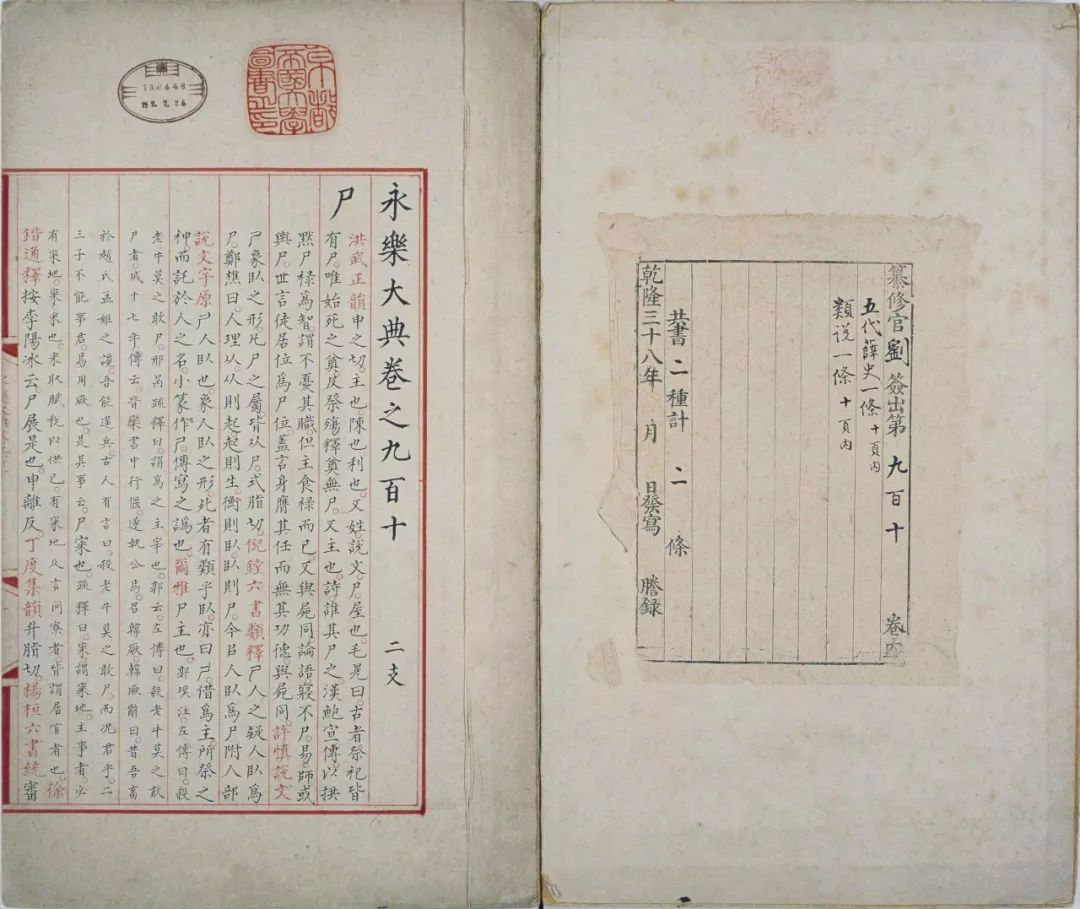 纂修官劉 簽出第 九百十 卷內
五代薛史一條 十頁內
類說一條 十頁內
共書 二種計 二 條
乾隆三十八年 月 日發寫 謄錄
京都帝國大學圖書之印
永樂大典卷之九百十 二支
尸
洪武正韻申之切。主也。陳也利也。又姓。說文。尸。屋也。毛晃曰。古者祭祀皆
有尸。唯始死之奠。及祭殤釋奠無尸。又主也。詩。誰其尸之。漢鮑宣傳。以拱
默尸祿為智。謂不憂其職。但主食祿而已。又與屍同論語寢不尸。易。師或
輿尸。世言徒居位為尸位。蓋言身膺其任而無其功德。與屍同。許慎說文
尸象臥之形。凡尸之屬皆从尸。式脂切。倪鏜六書類釋尸人之疑人臥為
尸。鄭樵曰。人理以从則起。起則生。衡則臥。臥則尸。今㠯人臥為尸附人部
說文字原尸人臥也。象人臥之形。死者有類乎臥。亦曰尸。借為主。所祭之
神。而託於人之名。小篆作尸。傳寫之譌也。爾雅尸主也。郭璞注。左傳曰。殺
老牛莫之敢尸。邢昺疏釋曰。謂為之主宰也。郭云。左傳曰。殺老牛莫之敢
尸者。成十七年傳云。晉欒書中行偃。遂執公焉。召韓厥。韓厥辭曰。昔吾畜
於趙氏。孟姬之讒。吾能違兵。古人有言曰。殺老牛莫之敢尸。而況君乎。二
三子不能事君。焉用厥也。是其事云。尸寀也。疏釋曰。寀謂寀地。主事者。必
有寀地。寀。采也。采取賦稅以供己。有寀地及言同寮者。皆謂居官者也。徐
鍇通釋按李陽冰云。尸展是也。申離反。丁度集韻升脂切。楊桓六書統審